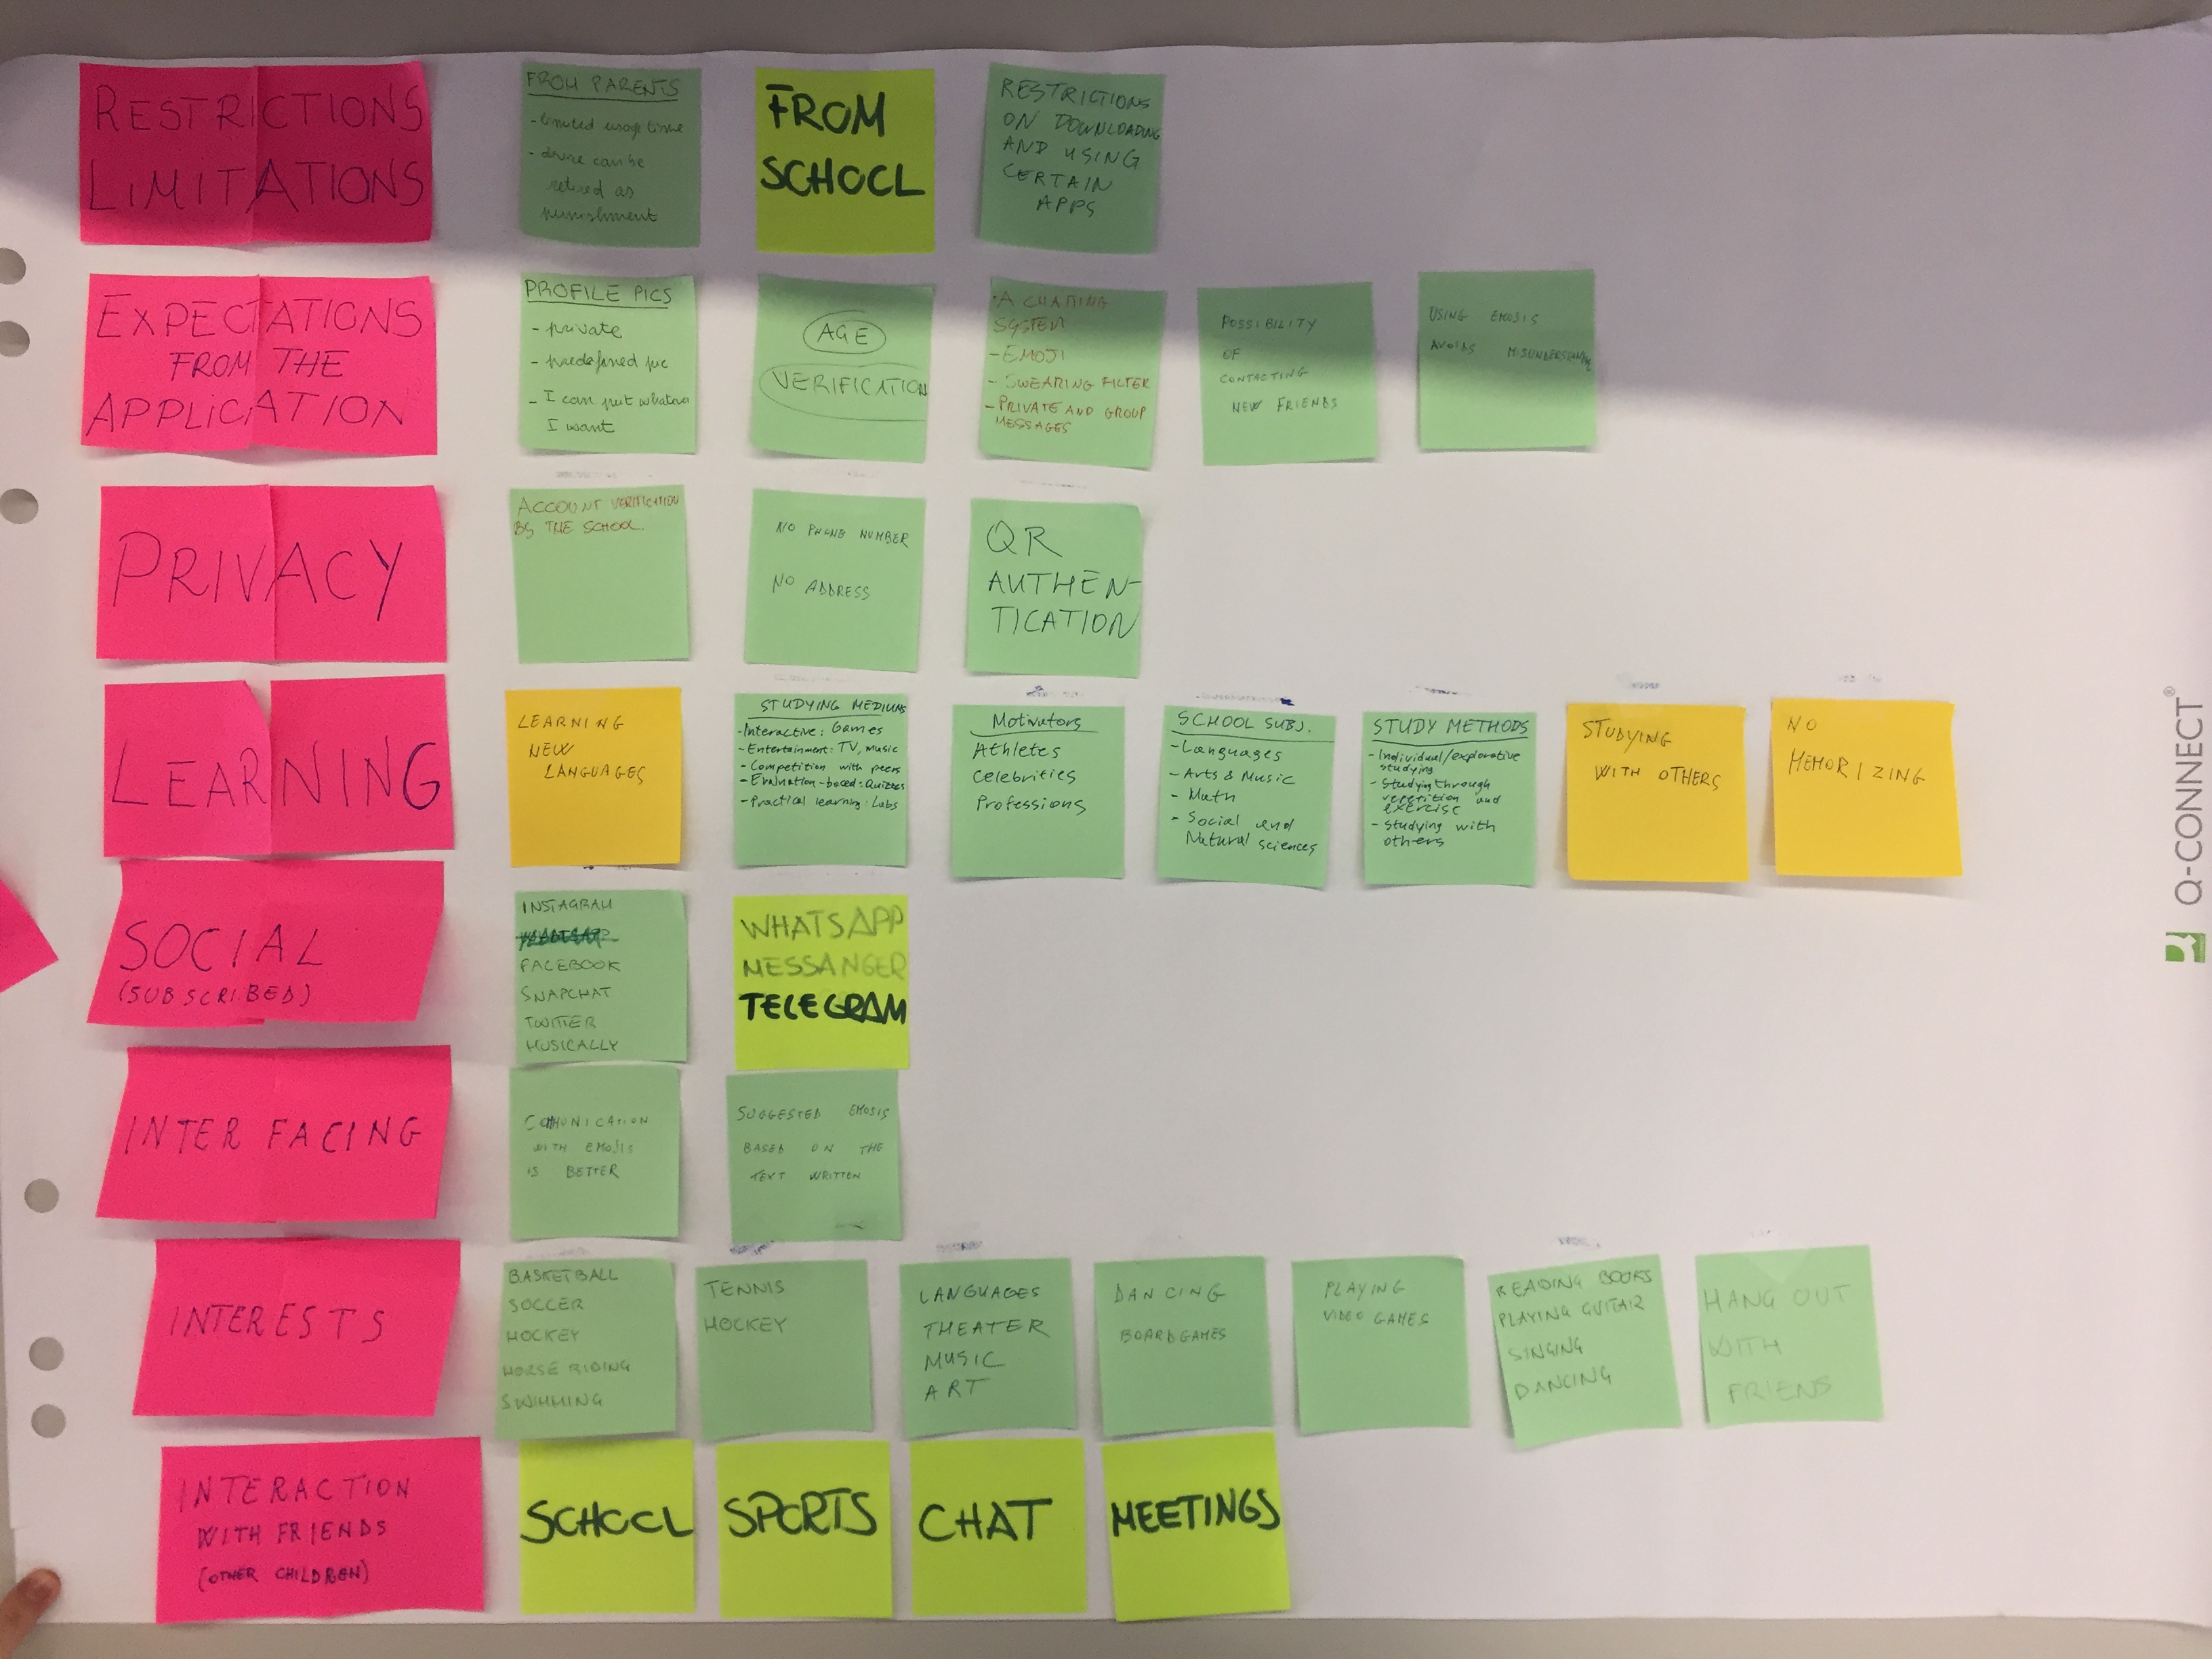 RESTRICTIONS
LIMITATIONS
FROM PARENTS
- limited usage time
- device can be
as
punishment
FROM
SCHOOL
RESTRICTIONS
ON DOWNLOADING
AND USING
CERTAIN
APPS
EXPECTATIONS
FROM THE
APPLICATION
PROFILE PICS
- private
- predefined pic
- I can put whatever
I want
AGE
VERIFICATION
A CHATTING
SYSTEM
- EMOJI
- SWEARING FILTER
- PRIVATE AND GROUP
MESSAGES
POSSIBILITY
OF
CONTACTING
NEW FRIENDS
USING EMOJIS
AVOIDS
PRIVACY
ACCOUNT VERIFICATION
By THE SCHOOL
NO PHONE NUMBER
NO ADDRESS
QR
AUTHEN-
TICATION
LEARNING
LEARNING
NEW
LANGUAGES
STUDYING MEDIUMS
- Interactive: Games
- Entertainment: TV, music
- Competition with peers
- Evaluation-based: Quizzes
- Practical learning: Labs
Motivators
Athletes
Celebrities
Professions
SCHOOL SUBJ.
- Languages
- Arts & Music
- Math
- Social and
Natural sciences
STUDY METHODS
- Individual/explorative
studying
- Studying through
repetition and
exercise
- Studying with
others
STUDYING
WITH OTHERS
NO
MEMORIZING
SOCIAL
(SUBSCRIBED)
INSTAGRAM
FACEBOOK
SNAPCHAT
TWITTER
MUSICALLY
WHATSAPP
MESSANGER
TELEGRAM
INTERFACING
COMMUNICATION
WITH EMOJIS
IS BETTER
SUGGESTED EMOJIS
BASED ON THE
TEXT WRITTEN
INTERESTS
BASKETBALL
SOCCER
HOCKEY
HORSE RIDING
SWIMMING
TENNIS
HOCKEY
LANGUAGES
THEATER
MUSIC
ART
DANCING
BOARDGAMES
PLAYING
VIDEO GAMES
READING BOOKS
PLAYING GUITAR
SINGING
DANCING
HANG OUT
WITH
FRIENS
INTERACTION
WITH FRIENDS
(OTHER CHILDREN)
SCHOOL
SPORTS
CHAT
MEETINGS
Q-CONNECT®